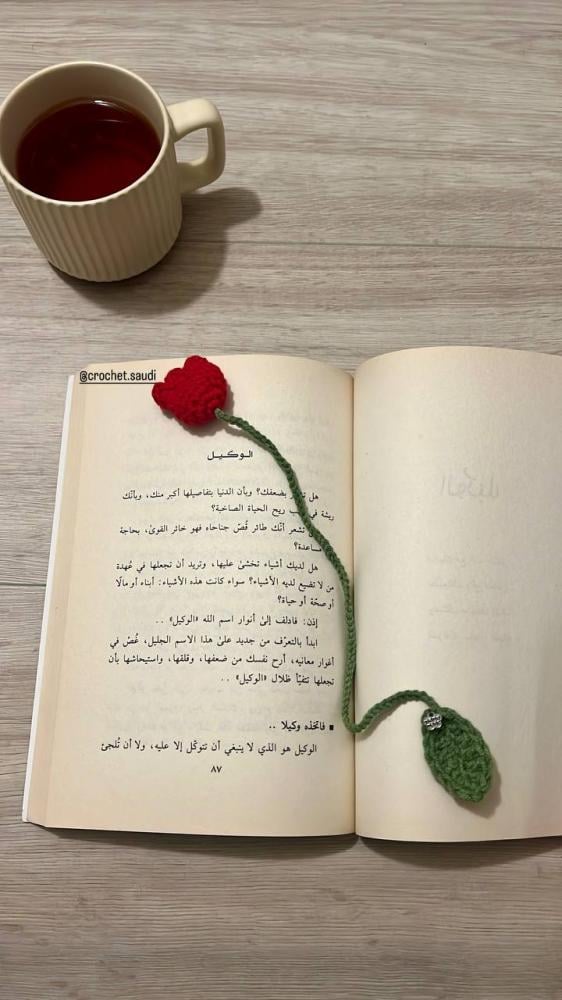 @crochet.saudi
الـوكـيـل
هل تشعر بضعفك؟ وبأن الدنيا بتفاصيلها أكبر منك، وبأنّك
ريشة في مهب ريح الحياة الصاخبة؟
تشعر أنّك طائر قُصّ جناحاه فهو خائر القوىٰ، بحاجة
هل لديك أشياء تخشىٰ عليها، وتريد أن تجعلها في عُهدة
من لا تضيع لديه الأشياء؟ سواء كانت هذه الأشياء: أبناء أو مالًا
أو صحّة أو حياة؟
إذن: فادلف إلىٰ أنوار اسم الله «الوكيل» . .
ابدأ بالتعرّف من جديد علىٰ هذا الاسم الجليل، غُصْ في
أغوار معانيه، أرح نفسك من ضعفها، وقلقها، واستيحاشها بأن
تجعلها تتفيّأ ظلال «الوكيل» . .
▪ فاتخذه وكيلا ..
الوكيل هو الذي لا ينبغي أن تتوكّل إلا عليه، ولا أن تُلجئ
٨٧